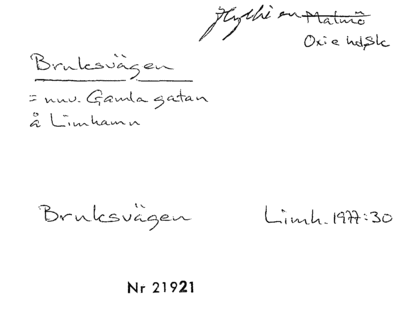 Hyllie sn Malmö
Oxie hd, Sk
Bruksvägen
= nuv. Gamla gatan
å Limhamn
Bruksvägen Limh. 1977:30
Nr 21921